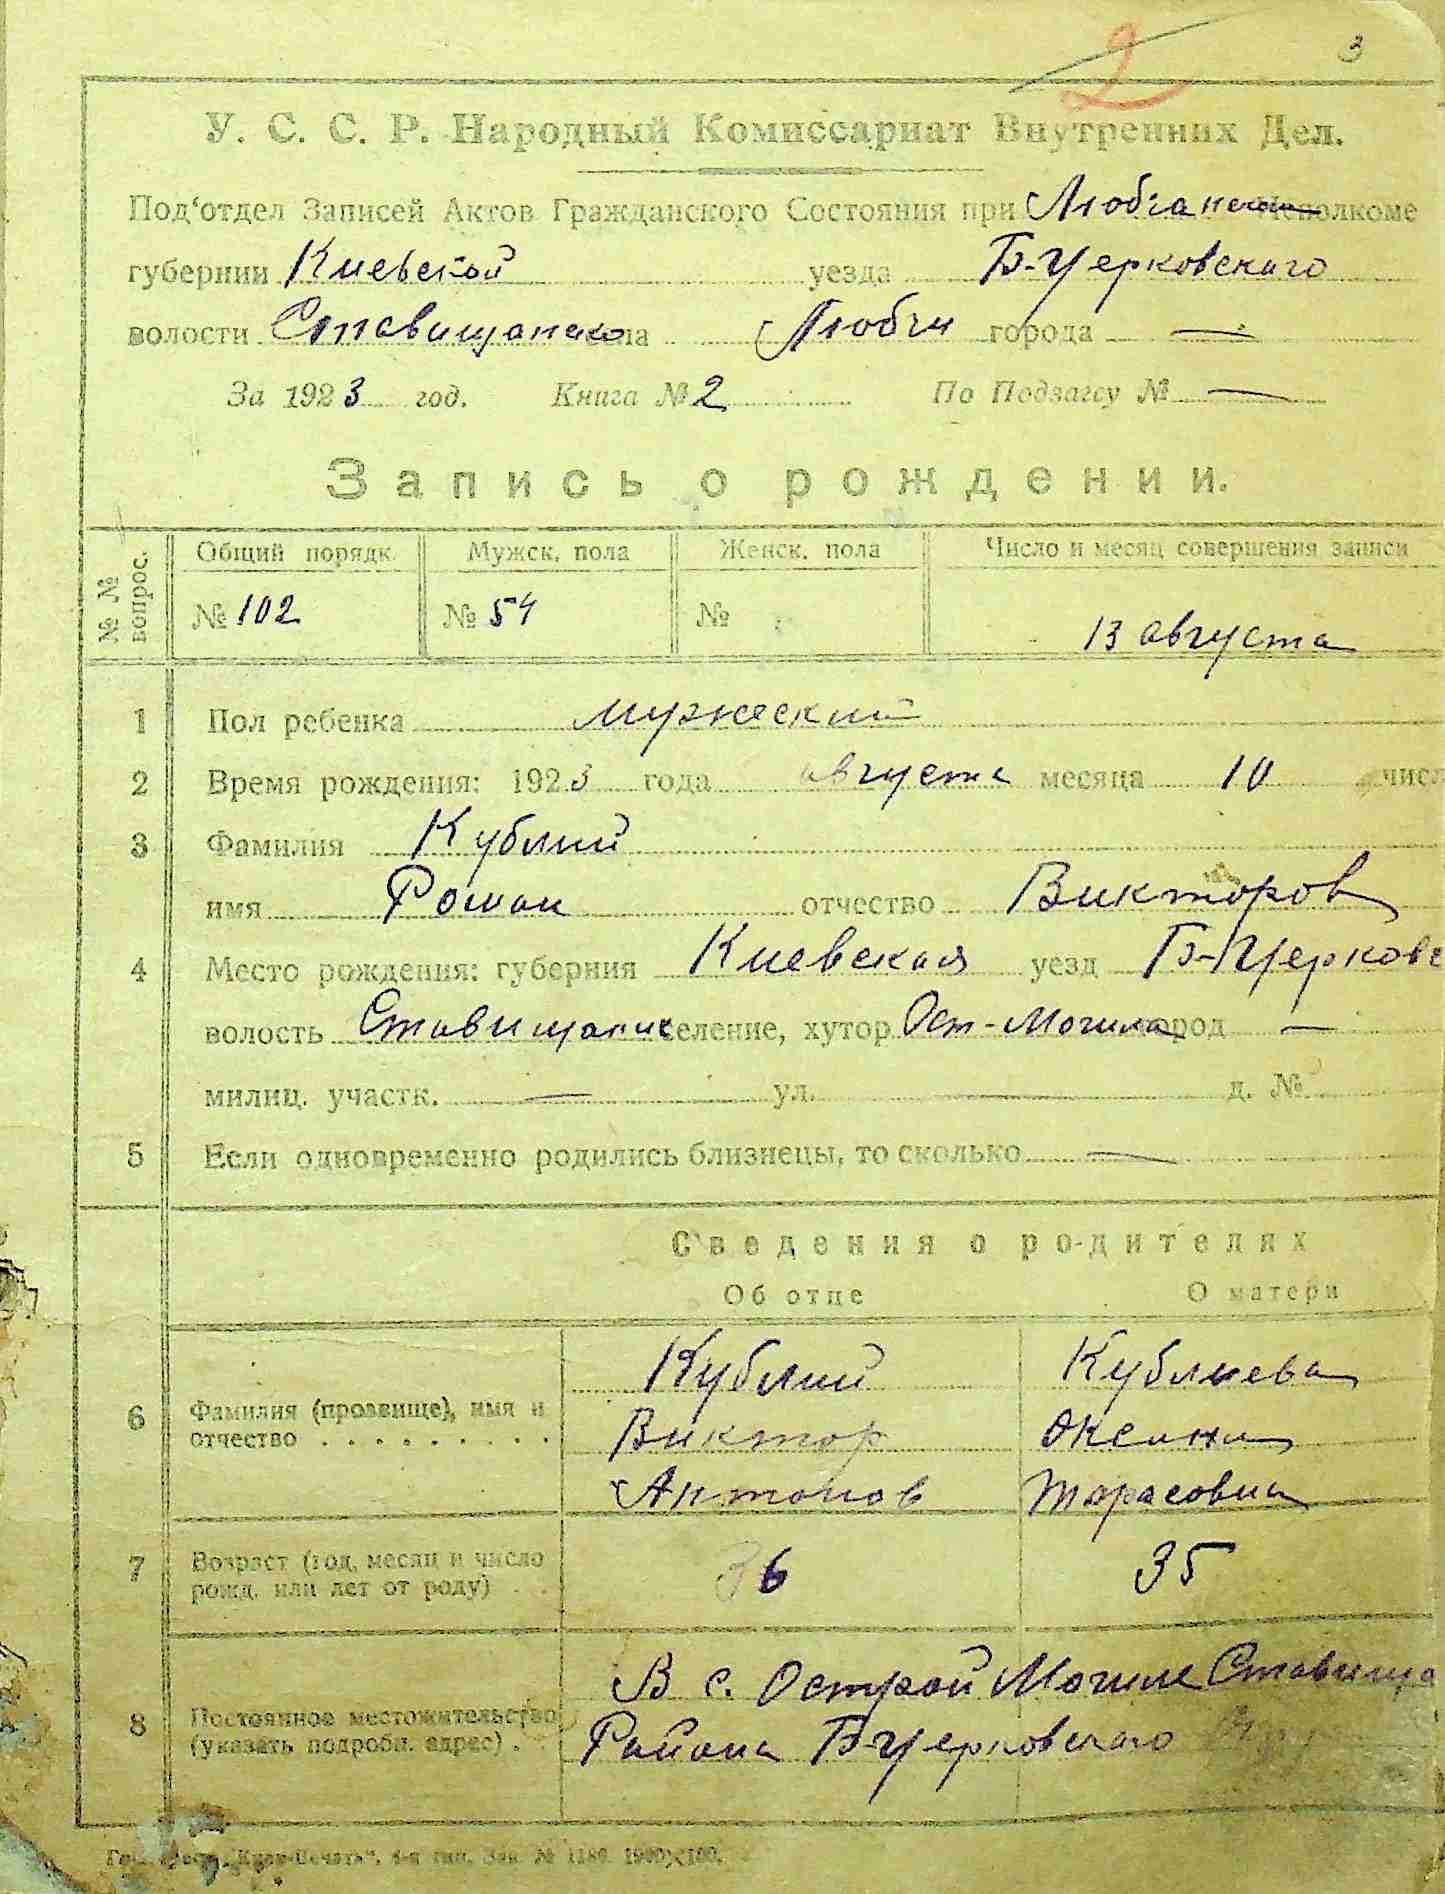 2 3
У. С. С. Р. Народный Комиссариат Внутренних Дел.
Под‘отдел Записей Актов Гражданского Состояния при Любчанском Исполкоме
губернии Киевской уезда Б-Церковского
волости Ставищанско села Любчи города —
За 1923 год. Книга № 2 По Подзагсу № —
Запись о рождении.
№ № вопрос. Общий порядк. Мужск. пола Женск. пола Число и месяц совершения записи
№ 102 № 54 № 13 августа
1 Пол ребенка мужеский
2 Время рождения: 1923 года августа месяца 10 числ
3 Фамилия Кублий
имя Роман отчество Викторов
4 Место рождения: губерния Киевская уезд Б-Церковс
волость Ставищанск селение, хутор Ост-Могила город —
милиц. участк. — ул. — д. №
5 Если одновременно родились близнецы, то сколько —
Сведения о родителях
Об отце О матери
6 Фамилия (прозвище), имя и отчество . . . . . . . . . Кублий Кублиева
Виктор Оксана
Антонов Тарасовна
7 Возраст (год, месяц и число рожд. или лет от роду) . . 36 35
8 Постоянное местожительство (указать подробн. адрес) . В с. Острой Могиле Ставища
Района Б-Церковского
4-я тип. Зак. № 1189